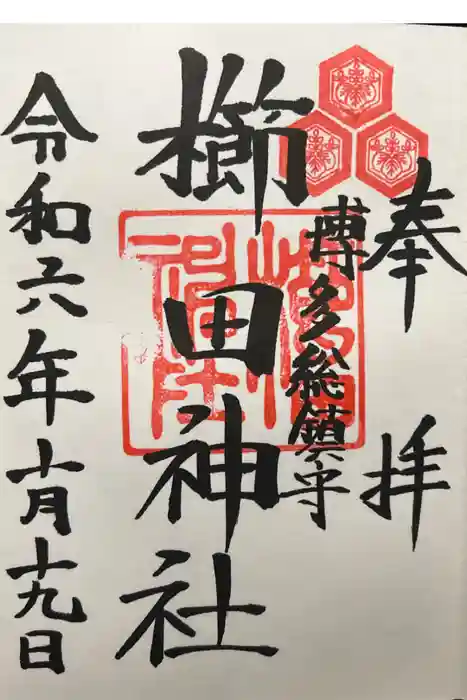 奉拝
博多総鎮守
櫛田神社
令和六年十月十九日